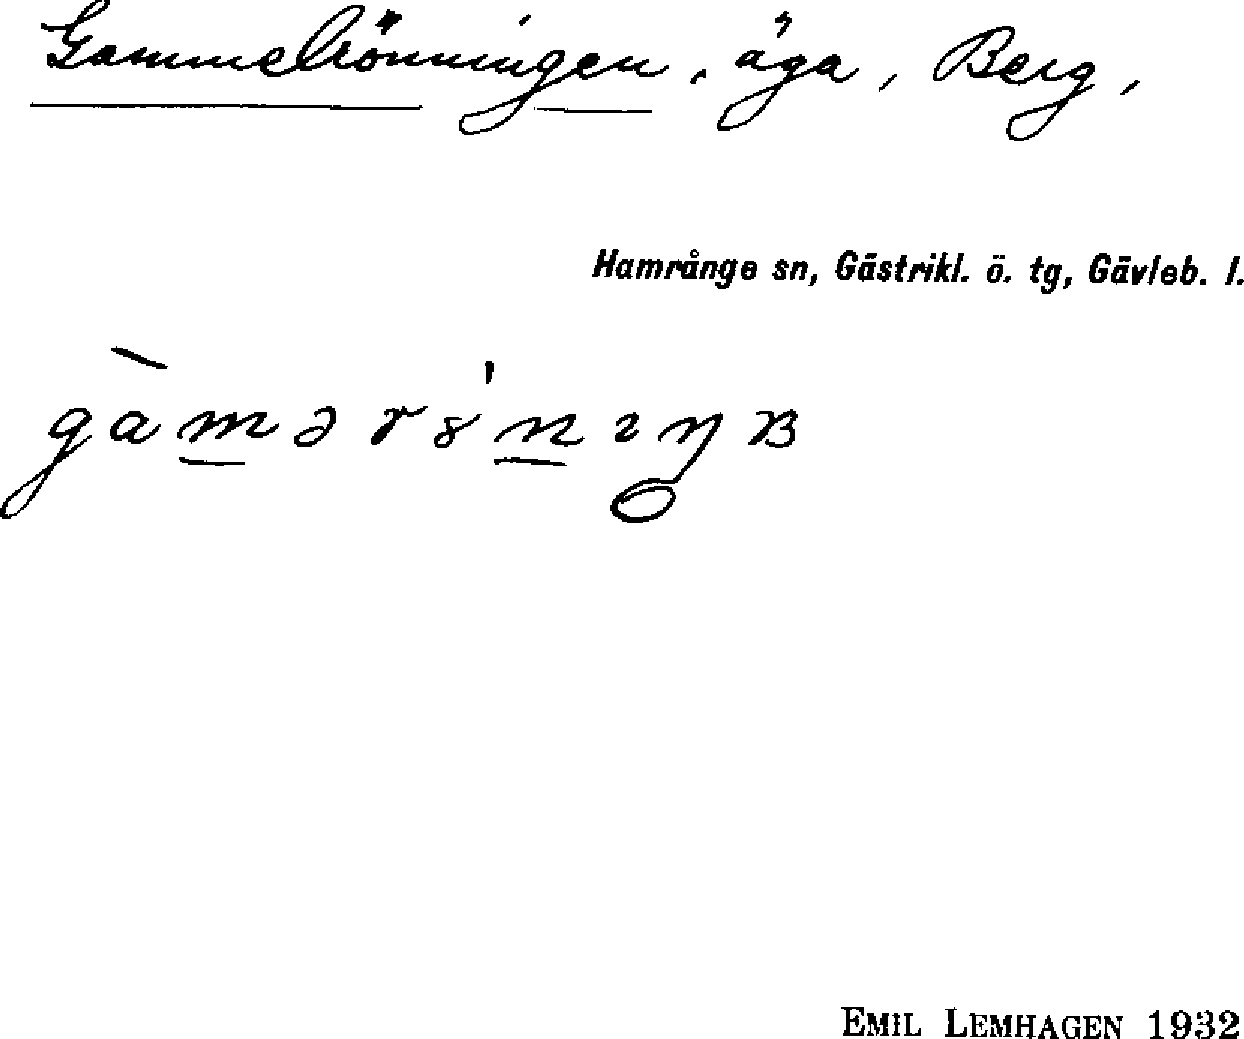 Gammelrönningen, äga, Berg,
Hamrånge sn, Gästrikl. ö. tg, Gävleb. l.
EMIL LEMHAGEN 1932